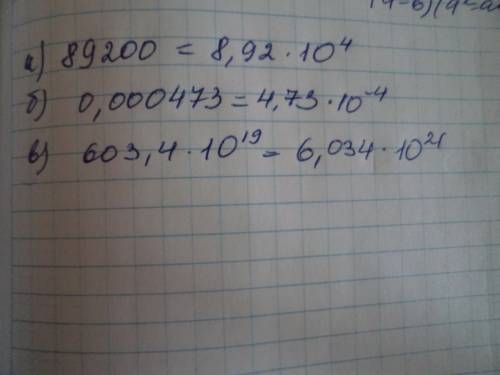 а) 89200 = 8,92 · 10⁴
б) 0,000473 = 4,73 · 10⁻⁴
в) 603,4 · 10¹⁹ = 6,034 · 10²¹